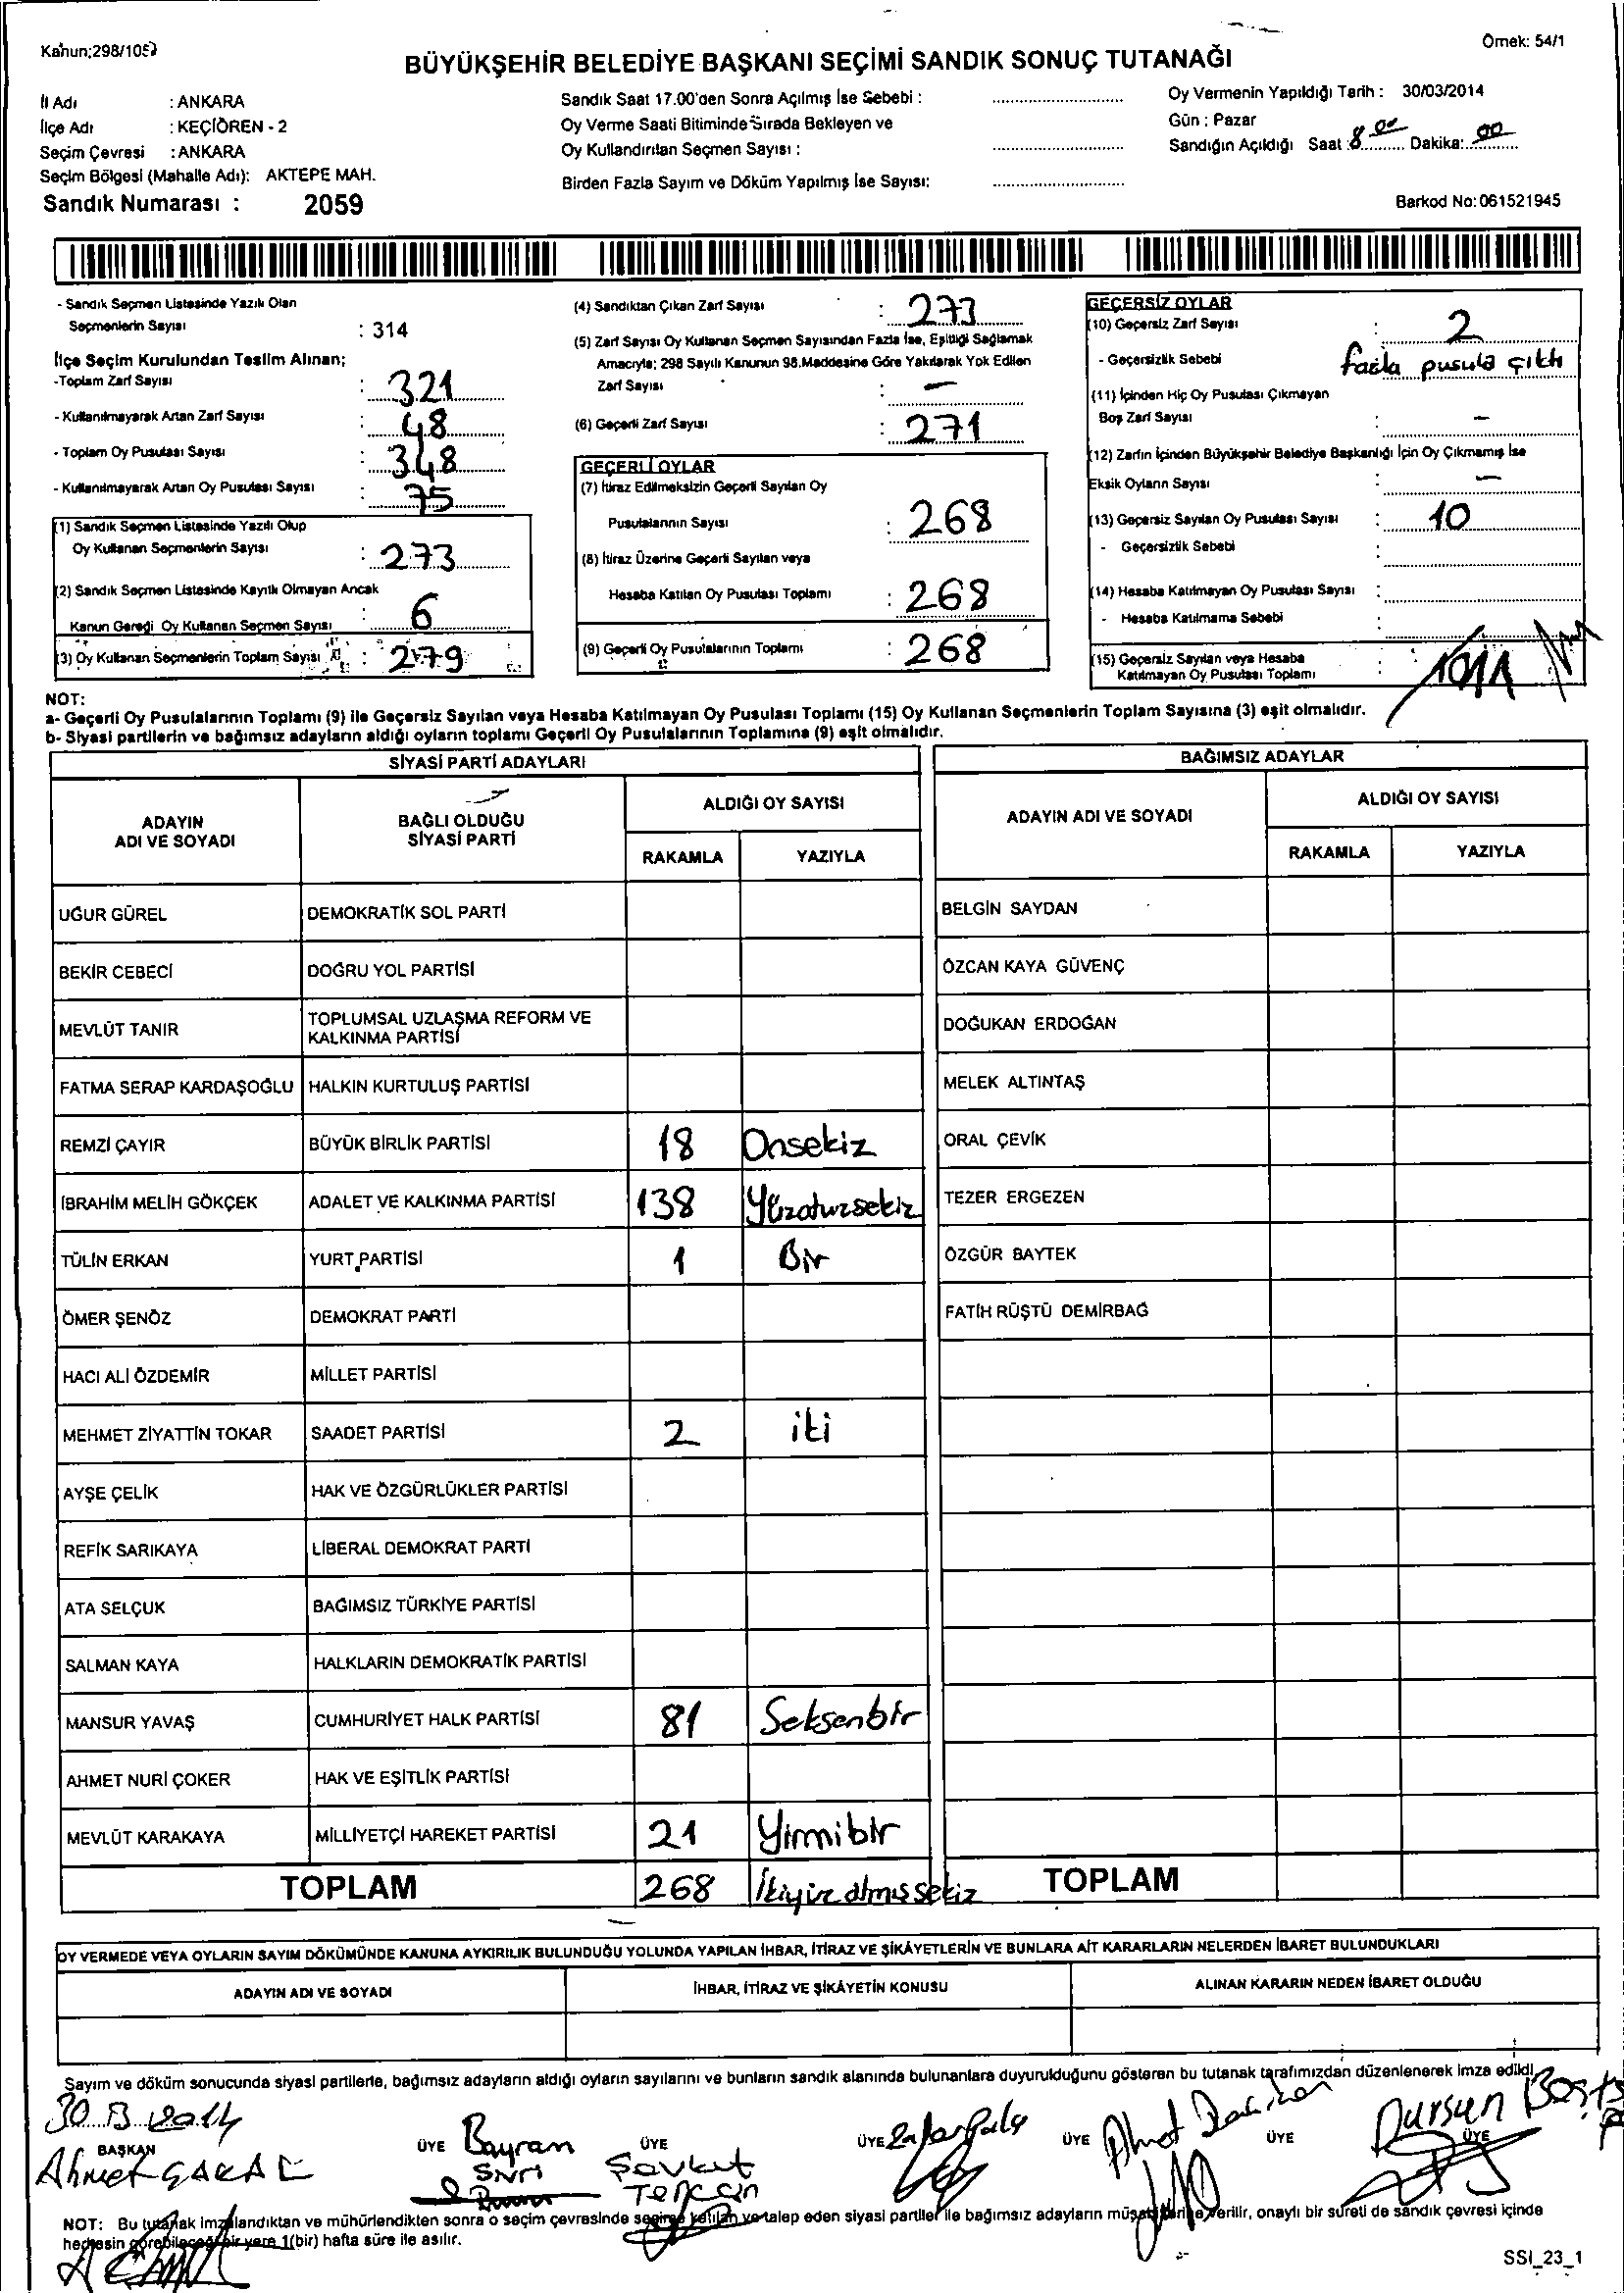 Kanun;298/105
Örnek: 54/1
BÜYÜKŞEHİR BELEDİYE BAŞKANI SEÇİMİ SANDIK SONUÇ TUTANAĞI
İl Adı : ANKARA
İlçe Adı : KEÇİÖREN - 2
Seçim Çevresi : ANKARA
Seçim Bölgesi (Mahalle Adı): AKTEPE MAH.
Sandık Numarası : 2059
Sandık Saat 17.00'den Sonra Açılmış İse Sebebi :
Oy Verme Saati Bitiminde Sırada Bekleyen ve
Oy Kullandırılan Seçmen Sayısı :
Birden Fazla Sayım ve Döküm Yapılmış İse Sayısı:
Oy Vermenin Yapıldığı Tarih : 30/03/2014
Gün : Pazar
Sandığın Açıldığı Saat : 8.00 Dakika: 00
Barkod No: 061521945
- Sandık Seçmen Listesinde Yazılı Olan
Seçmenlerin Sayısı : 314
İlçe Seçim Kurulundan Teslim Alınan;
-Toplam Zarf Sayısı : 321
- Kullanılmayarak Artan Zarf Sayısı : 48
- Toplam Oy Pusulası Sayısı : 348
- Kullanılmayarak Artan Oy Pusulası Sayısı : 75
(1) Sandık Seçmen Listesinde Yazılı Olup
Oy Kullanan Seçmenlerin Sayısı : 273
(2) Sandık Seçmen Listesinde Kayıtlı Olmayan Ancak
Kanun Gereği Oy Kullanan Seçmen Sayısı : 6
(3) Oy Kullanan Seçmenlerin Toplam Sayısı : 279
(4) Sandıktan Çıkan Zarf Sayısı : 273
(5) Zarf Sayısı Oy Kullanan Seçmen Sayısından Fazla İse, Eşitliği Sağlamak
Amacıyla; 298 Sayılı Kanunun 98.Maddesine Göre Yakılarak Yok Edilen
Zarf Sayısı : -
(6) Geçerli Zarf Sayısı : 271
GEÇERLİ OYLAR
(7) İtiraz Edilmeksizin Geçerli Sayılan Oy
Pusulalarının Sayısı : 268
(8) İtiraz Üzerine Geçerli Sayılan veya
Hesaba Katılan Oy Pusulası Toplamı : 268
(9) Geçerli Oy Pusulalarının Toplamı : 268
GEÇERSİZ OYLAR
(10) Geçersiz Zarf Sayısı : 2
- Geçersizlik Sebebi fazla pusula çıktı
(11) İçinden Hiç Oy Pusulası Çıkmayan
Boş Zarf Sayısı : -
(12) Zarfın İçinden Büyükşehir Belediye Başkanlığı İçin Oy Çıkmamış İse
Eksik Oyların Sayısı : -
(13) Geçersiz Sayılan Oy Pusulası Sayısı : 10
- Geçersizlik Sebebi :
(14) Hesaba Katılmayan Oy Pusulası Sayısı :
- Hesaba Katılmama Sebebi
(15) Geçersiz Sayılan veya Hesaba
Katılmayan Oy Pusulası Toplamı :
NOT:
a- Geçerli Oy Pusulalarının Toplamı (9) ile Geçersiz Sayılan veya Hesaba Katılmayan Oy Pusulası Toplamı (15) Oy Kullanan Seçmenlerin Toplam Sayısına (3) eşit olmalıdır.
b- Siyasi partilerin ve bağımsız adayların aldığı oyların toplamı Geçerli Oy Pusulalarının Toplamına (9) eşit olmalıdır.
SİYASİ PARTİ ADAYLARI
ADAYIN ADI VE SOYADI
BAĞLI OLDUĞU SİYASİ PARTİ
ALDIĞI OY SAYISI
RAKAMLA YAZIYLA
UĞUR GÜREL DEMOKRATİK SOL PARTİ
BEKİR CEBECİ DOĞRU YOL PARTİSİ
MEVLÜT TANIR TOPLUMSAL UZLAŞMA REFORM VE
KALKINMA PARTİSİ
FATMA SERAP KARDAŞOĞLU HALKIN KURTULUŞ PARTİSİ
REMZİ ÇAYIR BÜYÜK BİRLİK PARTİSİ 18 Onsekiz
İBRAHİM MELİH GÖKÇEK ADALET VE KALKINMA PARTİSİ 138 Yüzotuzsekiz
TÜLİN ERKAN YURT PARTİSİ 1 Bir
ÖMER ŞENÖZ DEMOKRAT PARTİ
HACI ALİ ÖZDEMİR MİLLET PARTİSİ
MEHMET ZİYATTİN TOKAR SAADET PARTİSİ 2 iki
AYŞE ÇELİK HAK VE ÖZGÜRLÜKLER PARTİSİ
REFİK SARIKAYA LİBERAL DEMOKRAT PARTİ
ATA SELÇUK BAĞIMSIZ TÜRKİYE PARTİSİ
SALMAN KAYA HALKLARIN DEMOKRATİK PARTİSİ
MANSUR YAVAŞ CUMHURİYET HALK PARTİSİ 81 Seksenbir
AHMET NURİ ÇOKER HAK VE EŞİTLİK PARTİSİ
MEVLÜT KARAKAYA MİLLİYETÇİ HAREKET PARTİSİ 21 Yirmibir
TOPLAM 268 İkiyüzatmışsekiz
BAĞIMSIZ ADAYLAR
ADAYIN ADI VE SOYADI
ALDIĞI OY SAYISI
RAKAMLA YAZIYLA
BELGİN SAYDAN
ÖZCAN KAYA GÜVENÇ
DOĞUKAN ERDOĞAN
MELEK ALTINTAŞ
ORAL ÇEVİK
TEZER ERGEZEN
ÖZGÜR BAYTEK
FATİH RÜŞTÜ DEMİRBAĞ
TOPLAM
OY VERMEDE VEYA OYLARIN SAYIM DÖKÜMÜNDE KANUNA AYKIRILIK BULUNDUĞU YOLUNDA YAPILAN İHBAR, İTİRAZ VE ŞİKÂYETLERİN VE BUNLARA AİT KARARLARIN NELERDEN İBARET BULUNDUKLARI
ADAYIN ADI VE SOYADI İHBAR, İTİRAZ VE ŞİKÂYETİN KONUSU ALINAN KARARIN NEDEN İBARET OLDUĞU
Sayım ve döküm sonucunda siyasi partilerle, bağımsız adayların aldığı oyların sayılarını ve bunların sandık alanında bulunanlara duyurulduğunu gösteren bu tutanak tarafımızdan düzenlenerek imza edildi.
30 2014
BAŞKAN ÜYE ÜYE ÜYE ÜYE ÜYE ÜYE
Ahmet Bayram Şevket Ahmet Dursun
NOT: Bu tutanak imzalandıktan ve mühürlendikten sonra o seçim çevresinde seçime katılan ve talep eden siyasi partiler ile bağımsız adayların müşahitlerine verilir, onaylı bir sureti de sandık çevresi içinde
herkesin görebileceği bir yere 1(bir) hafta süre ile asılır.
SSI_23_1